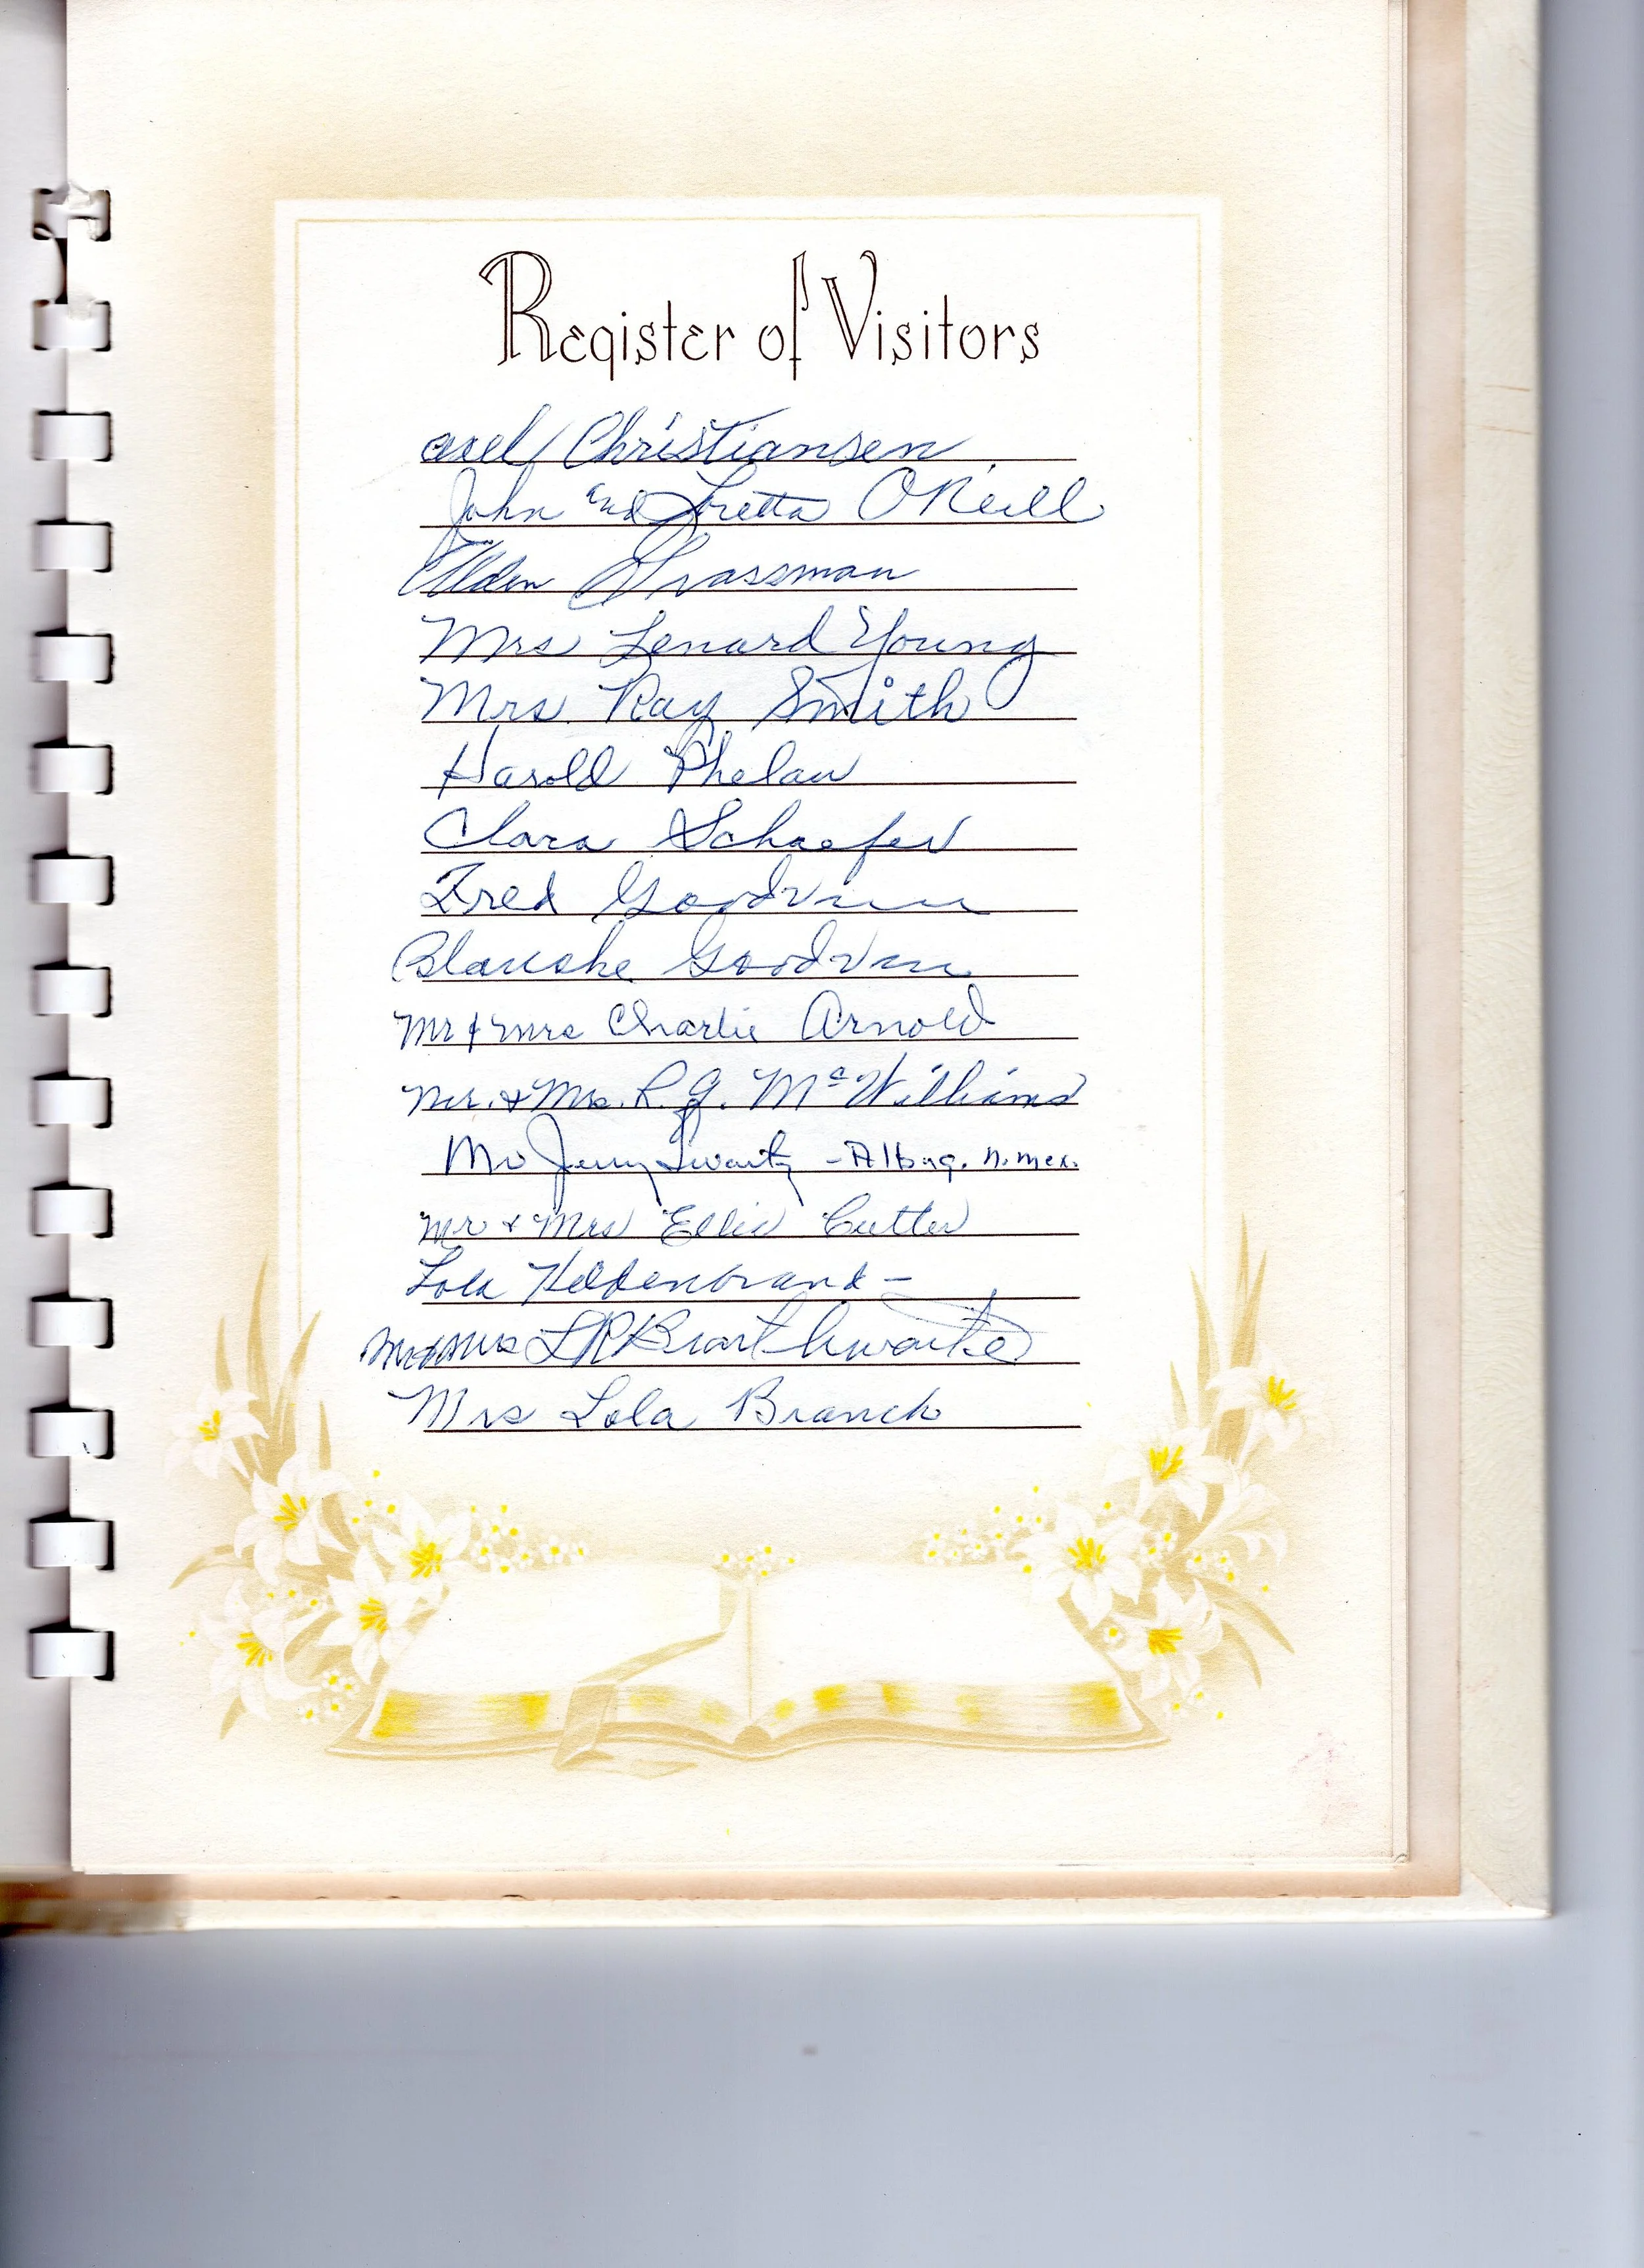 Register of Visitors
axel Christiansen
John and Loretta O'Neill
Elden Grassman
Mrs Lenard Young
Mrs. Ray Smith
Harold Phelan
Clara Schaefer
Fred Goodvin
Blanche Goodvin
Mr & Mrs Charlie Arnold
Mr. & Mrs. R. G. McWilliams
Mr Jerry Swartz - Albuq. N. Mex.
Mr & Mrs Ellis Cutter
Lola Heldenbrand -
Mr & Mrs L R Brarthwaite
Mrs Lola Branch